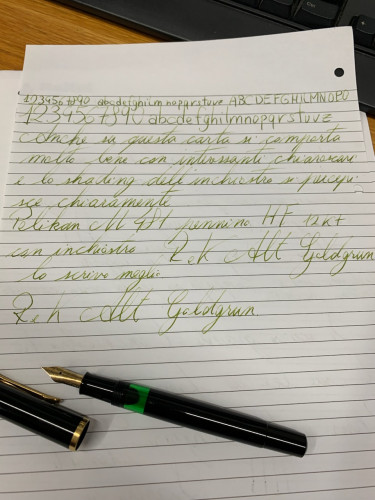 1234567890 abcdefghilmnopqrstuvz ABCDEFGHILMNOPQ
1234567890 abcdefghilmnopqrstuvz
Anche su questa carta si comporta
molto bene con interessanti chiaroscuri
e lo shading dell'inchiostro si percepi
sce chiaramente
Pelikan M 481 pennino HF 12kt
con inchiostro R&K Alt Goldgrun
lo scrivo meglio
R&K Alt Goldgrun